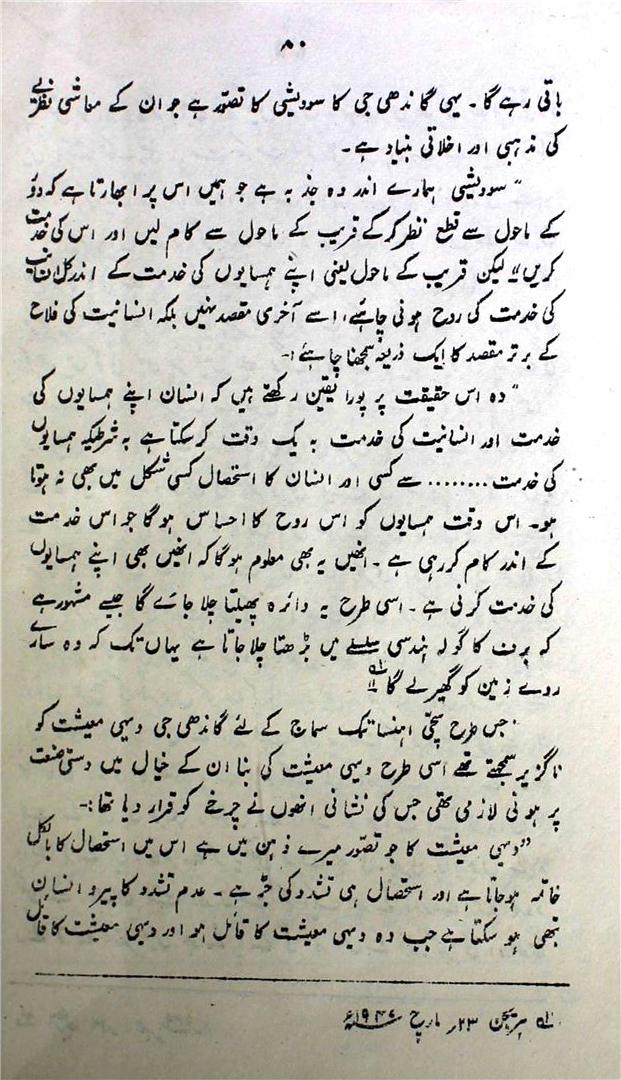 ۸۰
باقی رہے گا۔ یہی گاندھی جی کا سودیشی کا تصور ہے جو ان کے معاشی نظریے
کی مذہبی اور اخلاقی بنیاد ہے۔
”سودیشی ہمارے اندر وہ جذبہ ہے جو ہمیں اس پر ابھارتا ہے کہ دور
کے ماحول سے قطع نظر کرکے قریب کے ماحول سے کام لیں اور اس کی خدمت
کریں“ لیکن قریب کے ماحول یعنی اپنے ہمسایوں کی خدمت کے اندر کل انسانیت
کی خدمت کی روح ہونی چاہئے، اسے آخری مقصد نہیں بلکہ انسانیت کی فلاح
کے برتر مقصد کا ایک ذریعہ سمجھنا چاہئے:۔
”وہ اس حقیقت پر پورا یقین رکھتے ہیں کہ انسان اپنے ہمسایوں کی
خدمت اور انسانیت کی خدمت بہ یک وقت کرسکتا ہے بہ شرطیکہ ہمسایوں
کی خدمت ........ سے کسی اور انسان کا استحصال کسی شکل میں بھی نہ ہوتا
ہو۔ اس وقت ہمسایوں کو اس روح کا احساس ہوگا جو اس خدمت
کے اندر کام کررہی ہے۔ انھیں یہ بھی معلوم ہوگا کہ انھیں بھی اپنے ہمسایوں
کی خدمت کرنی ہے۔ اسی طرح یہ دائرہ پھیلتا چلا جائے گا جیسے مشہور ہے
کہ برف کا گولہ ہندسی سلسلے میں بڑھتا چلا جاتا ہے یہاں تک کہ وہ سارے
روئے زمین کو گھیر لے گا“ لہ
جس طرح سچی اہنساتیک سماج کے لئے گاندھی جی دیہی معیشت کو
ناگزیر سمجھتے تھے اسی طرح دیہی معیشت کی بنا ان کے خیال میں دستی صنعت
پر ہونی لازمی تھی جس کی نشانی انھوں نے چرخے کو قرار دیا تھا:۔
”دیہی معیشت کا جو تصور میرے ذہن میں ہے اس میں استحصال کا بالکل
خاتمہ ہوجاتا ہے اور استحصال ہی تشدد کی جڑ ہے۔ عدم تشدد کا پیرو انسان
تبھی ہو سکتا ہے جب وہ دیہی معیشت کا قائل ہو اور دیہی معیشت کا قائل
لہ ہریجن ۲۳ر مارچ ۱۹۴۷ء